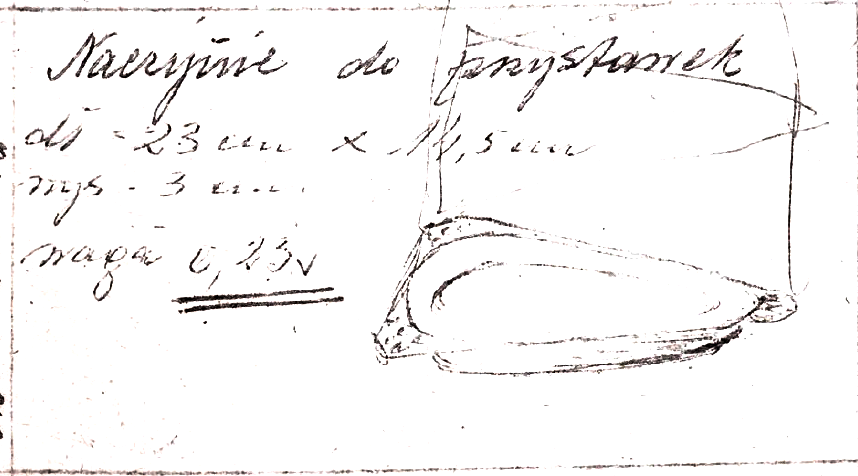 Naczynie do przystawek
dł - 23 cm x 14,5 cm
wys - 3 cm.
waga 0,23